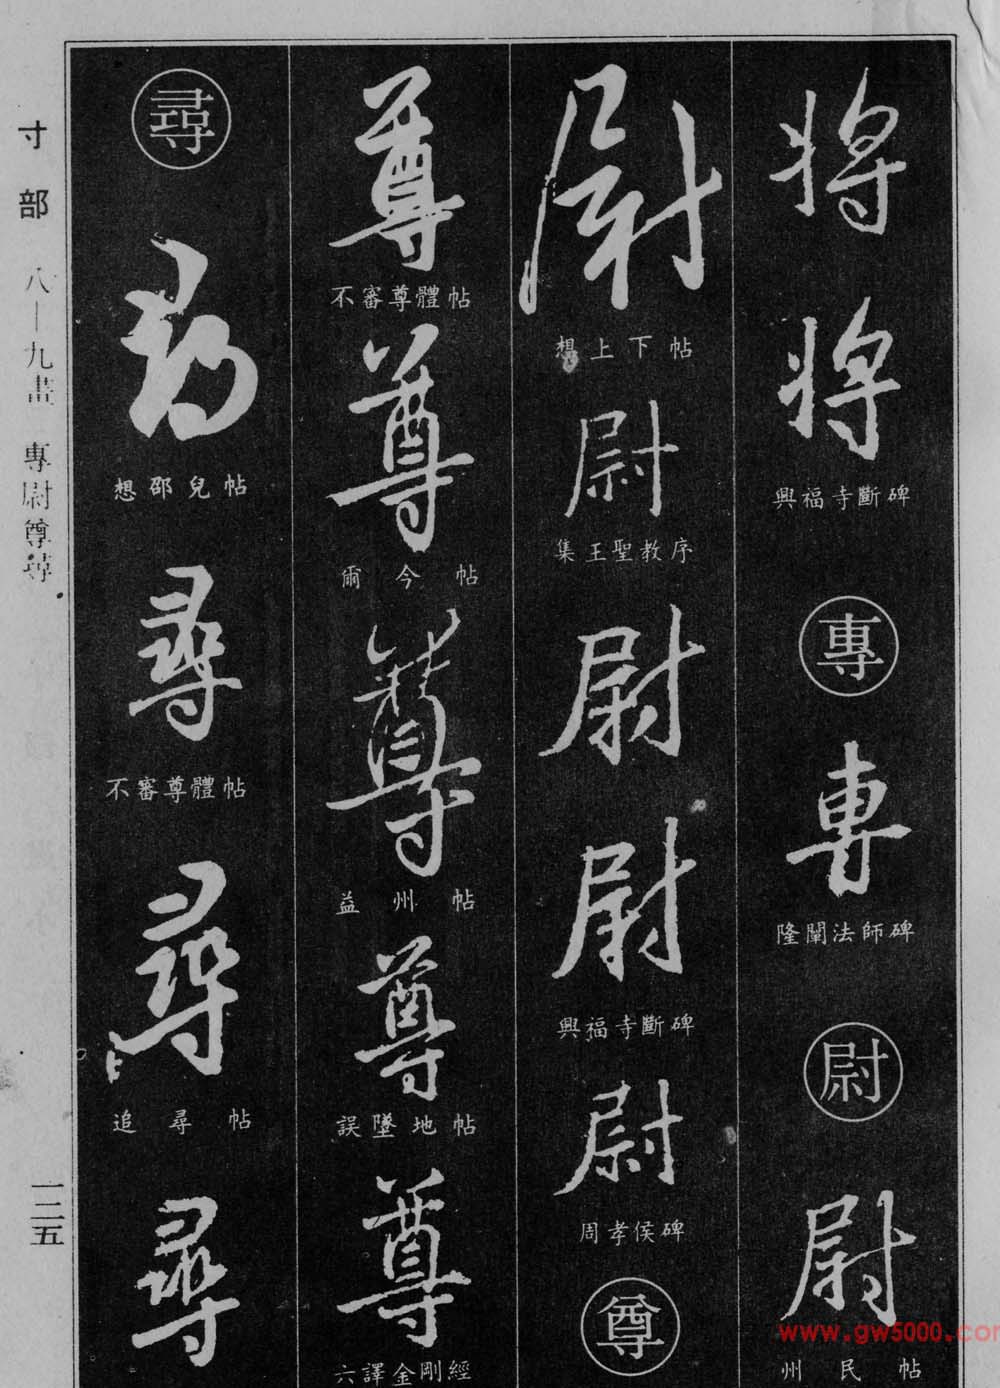 將
將
興福寺斷碑
專
專
隆闡法師碑
尉
尉
州民帖
尉
想上下帖
尉
集王聖教序
尉
尉
興福寺斷碑
尉
周孝侯碑
尊
尊
不審尊體帖
尊
爾今帖
尊
益州帖
尊
誤墜地帖
尊
六譯金剛經
尋
尋
想邵兒帖
尋
不審尊體帖
尋
追尋帖
尋
寸部 八—九畫 專尉尊尋
一二五
www.gw5000.com